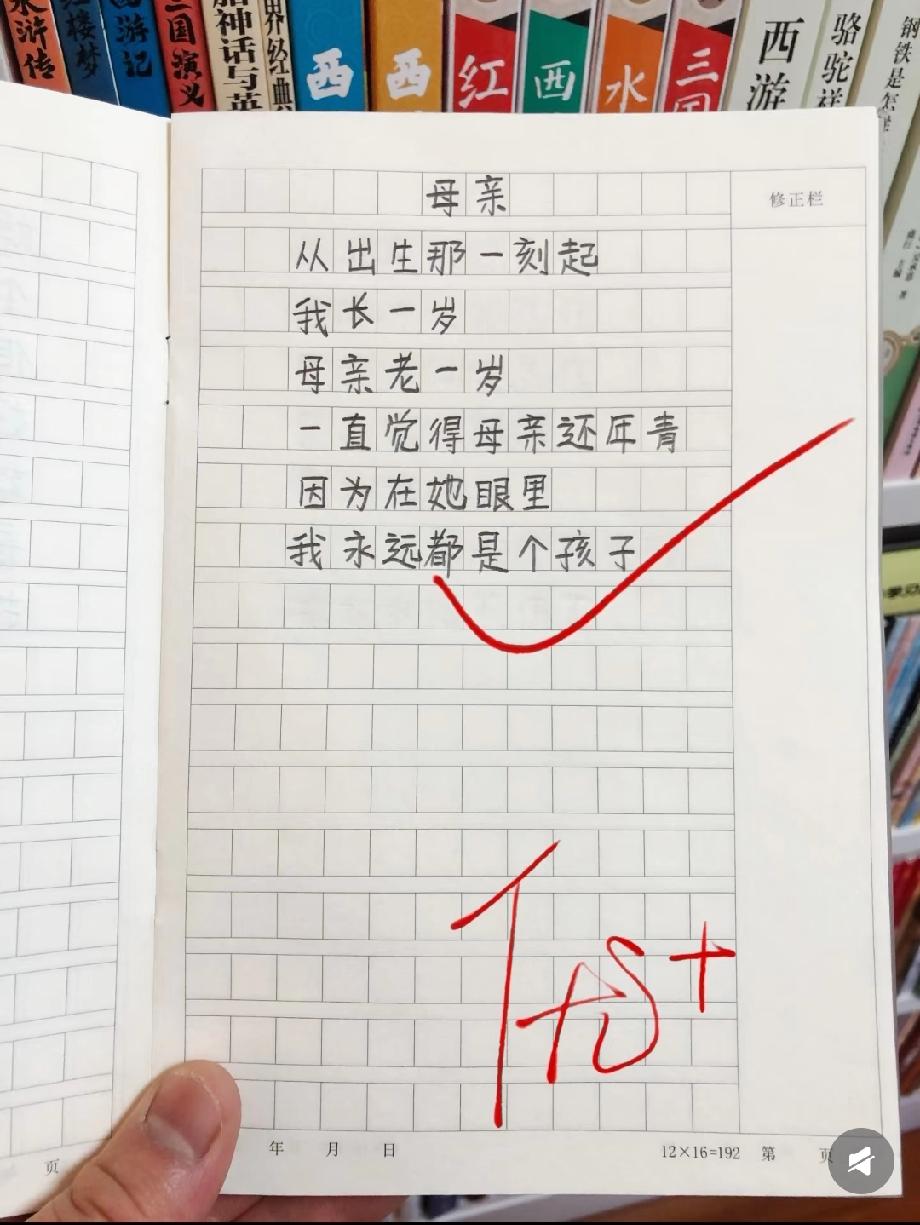 水浒传
红楼梦
西游记
三国演义
腊神话与英
世界经典
西
西
红
西
水
三国
西游
骆驼祥
钢铁是怎样
母亲
修正栏
从出生那一刻起
我长一岁
母亲老一岁
一直觉得母亲还年青
因为在她眼里
我永远都是个孩子
优+
年 月 日
12×16=192 第 页
页